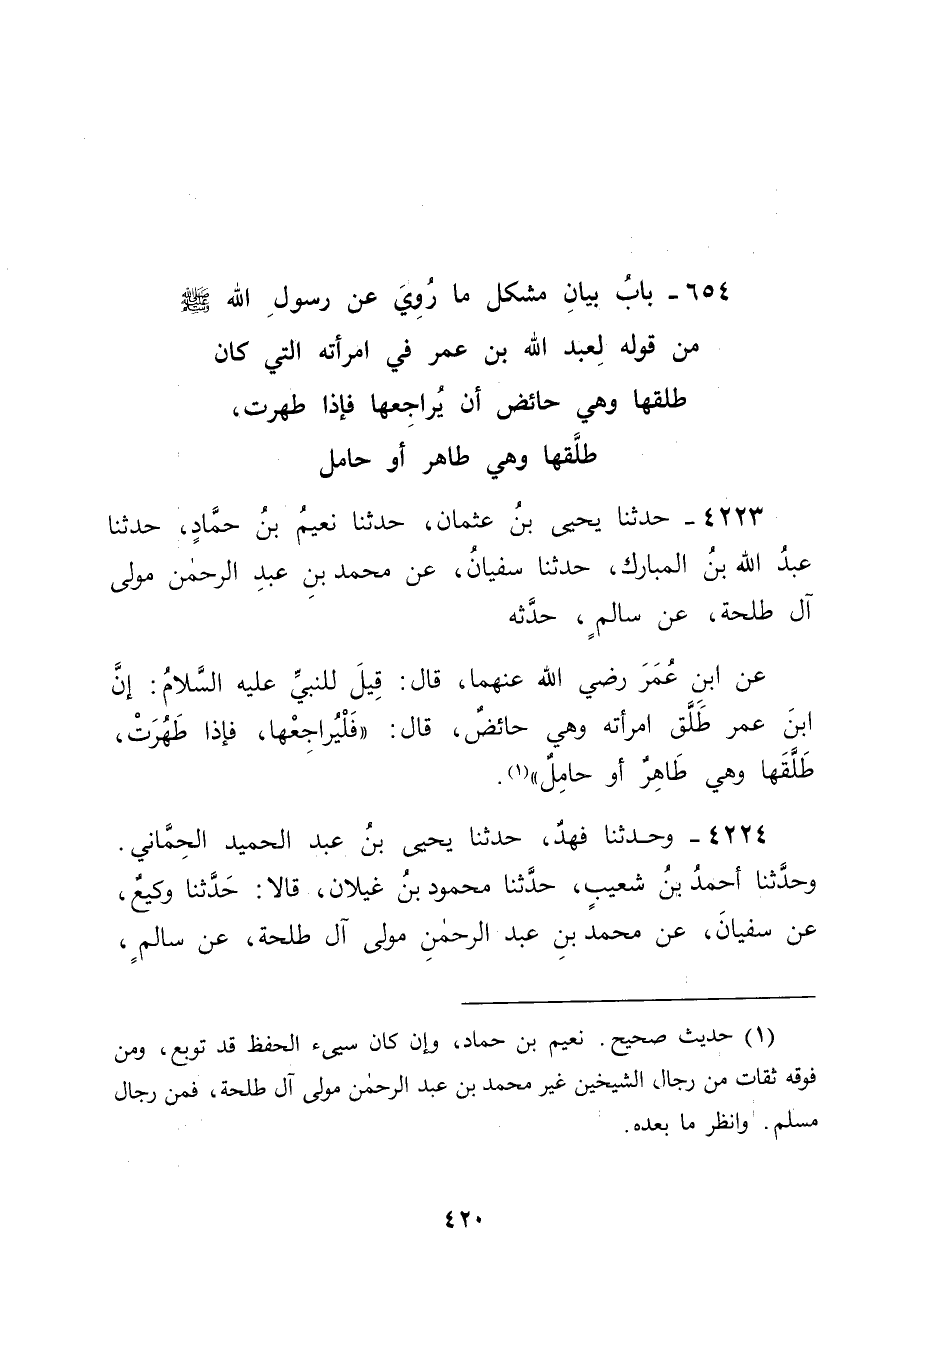 ٦٥٤ - بابُ بيانِ مشكل ما رُوِيَ عن رسولِ الله ﷺ
من قوله لِعبد الله بن عمر في امرأته التي كان
طلقها وهي حائض أن يُراجِعها فإذا طهرت،
طلَّقها وهي طاهر أو حامل
٤٢٢٣ - حدثنا يحيى بنُ عثمان، حدثنا نعيمُ بنُ حمَّادٍ، حدثنا
عبدُ الله بنُ المبارك، حدثنا سفيانُ، عن محمد بنِ عبدِ الرحمٰن مولى
آل طلحة، عن سالمٍ، حدَّثه
عن ابنِ عُمَرَ رضي الله عنهما، قال: قِيلَ للنبيِّ عليه السَّلامُ: إنَّ
ابنَ عمر طَلَّق امرأته وهي حائضٌ، قال: «فَلْيُراجِعْها، فإذا طَهُرَتْ،
طَلَّقَها وهي طَاهِرٌ أو حامِلٌ»(١).
٤٢٢٤ - وحدثنا فهدٌ، حدثنا يحيى بنُ عبد الحميد الحِمَّاني.
وحدَّثنا أحمدُ بنُ شعيبٍ، حدَّثنا محمود بنُ غيلان، قالا: حَدَّثنا وكيعٌ،
عن سفيانَ، عن محمد بنِ عبد الرحمٰنِ مولى آل طلحة، عن سالمٍ،
(١) حديث صحيح. نعيم بن حماد، وإن كان سيىء الحفظ قد توبع، ومن
فوقه ثقات من رجال الشيخين غير محمد بن عبد الرحمٰن مولى آل طلحة، فمن رجال
مسلم. وانظر ما بعده.
٤٢٠